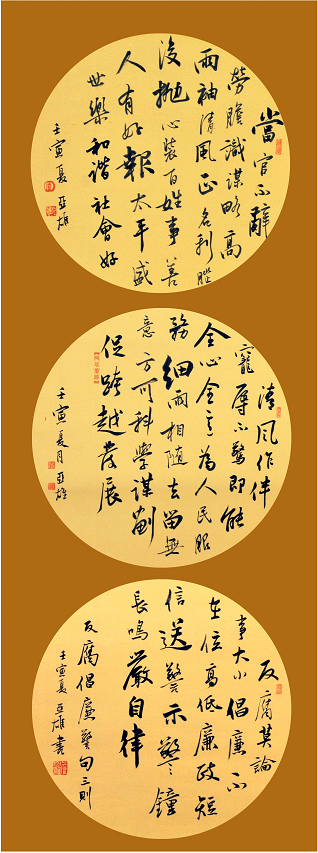 當官不辭
勞膽識謀略高
兩袖清風正名利腦
後拋心裝百姓事善
人有好報太平盛
世樂和諧社會好
壬寅夏亞雄
清風作伴
寵辱不驚即能
全心全意為人民服
務細雨相隨去留無
意方可科學謀劃
促跨越發展
壬寅夏月亞雄
反腐莫論
事大小倡廉不
在位高低廉政短
信送警示警鐘
長鳴嚴自律
反腐倡廉警句三則
壬寅夏亞雄書